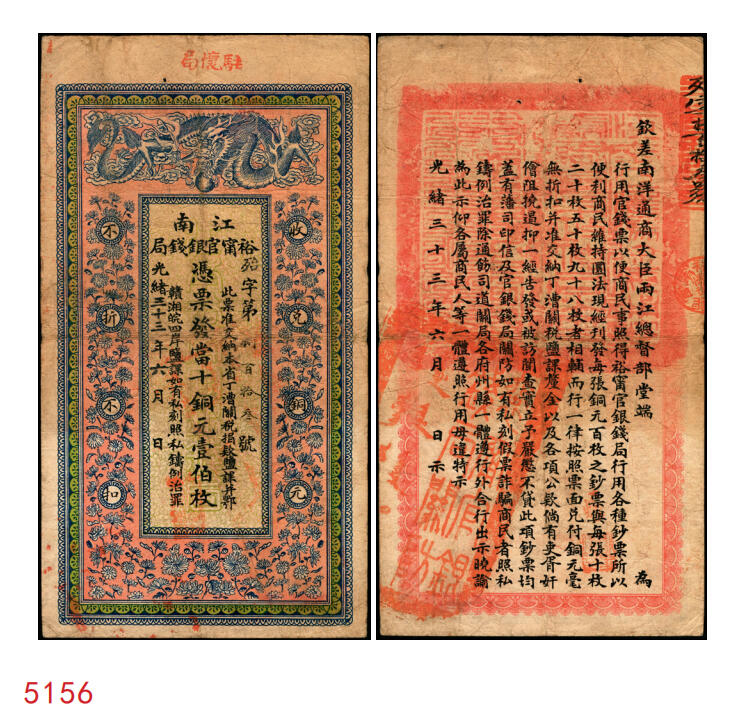 駐懷局
江南
裕甯官銀錢局
字第百拾叁號
此票准交納本省丁漕關稅捐欵鹽課并鄂
憑票發當十銅元壹伯枚
贛湘皖四岸鹽課如有私刻照私鑄例治罪
光緒三十三年六月 日
收兌銅元
不折不扣
欽差南洋通商大臣兩江總督部堂端 為
行用官錢票以便商民事照得裕甯官銀錢局行用各種鈔票所以
便利商民維持圜法現經刊發每張銅元百枚之鈔票與每張十枚
二十枚五十枚九十八枚者相輔而行一律按照票面兌付銅元毫
無折扣并准交納丁漕關稅鹽課釐金以及各項公欵倘有吏胥奸
儈阻撓過抑一經告發或被訪聞查實立予嚴懲不貸此項鈔票均
蓋有藩司印信及官銀錢局關防如有私刻假票詐騙商民者照私
鑄例治罪除通飭司道關局各府州縣一體遵行外合行出示曉諭
為此示仰各屬商民人等一體遵照行用毋違特示
光緒三十三年六月 日示
5156